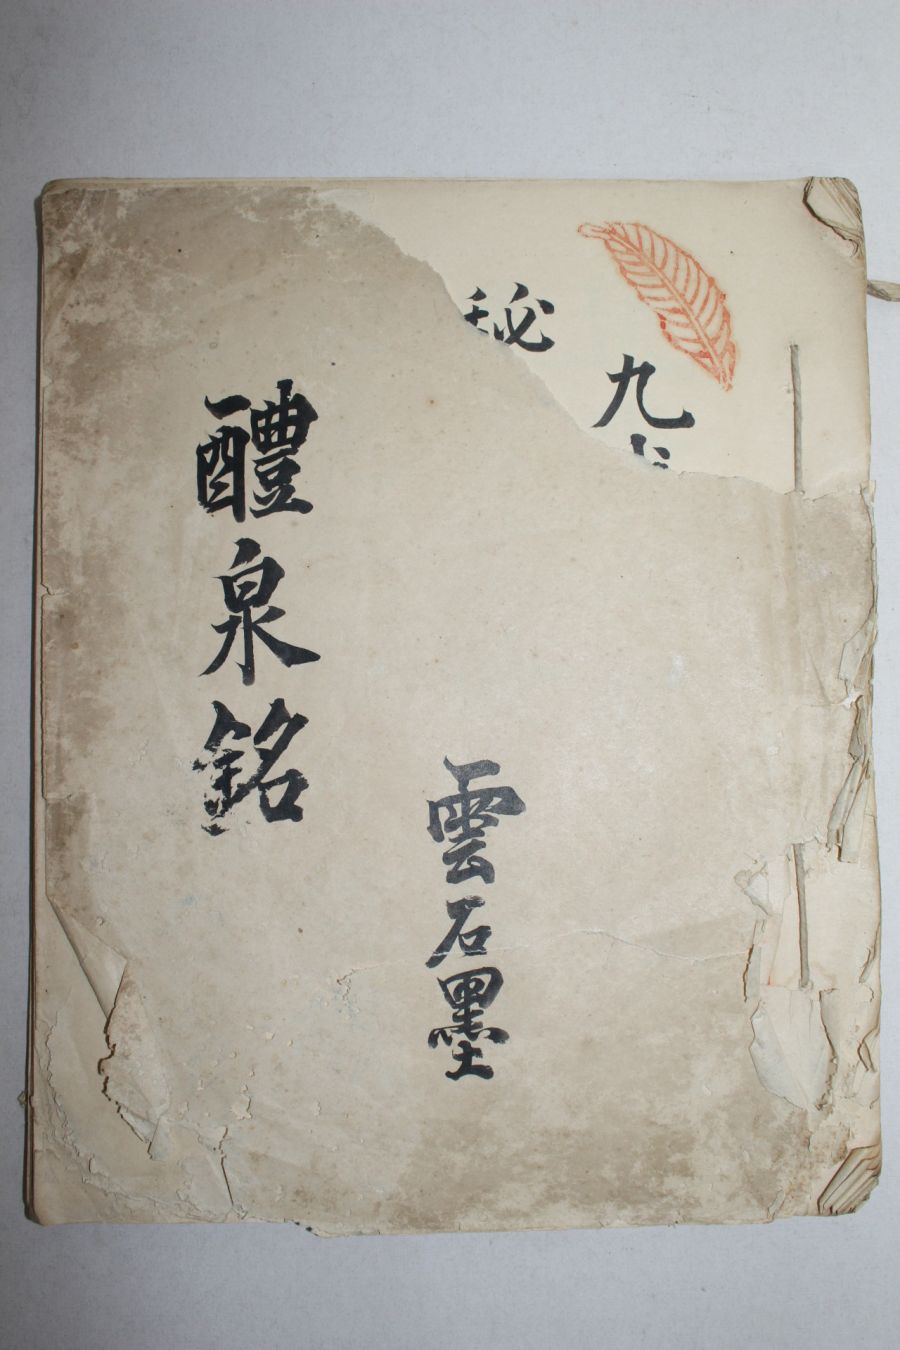 九成
秘
雲石墨
醴泉銘